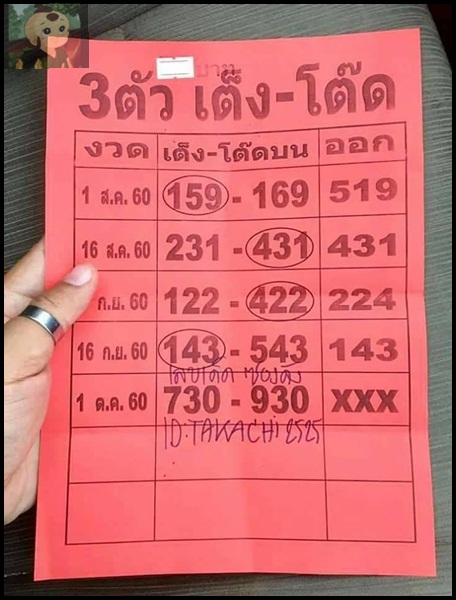 บาท
3ตัว เต็ง-โต๊ด
งวด เต็ง-โต๊ดบน ออก
1 ส.ค. 60 159 - 169 519
16 ส.ค. 60 231 - 431 431
ก.ย. 60 122 - 422 224
16 ก.ย. 60 143 - 543 143
เลขเด็ด ซองดัง
1 ต.ค. 60 730 - 930 XXX
ID:TAKACHi2525